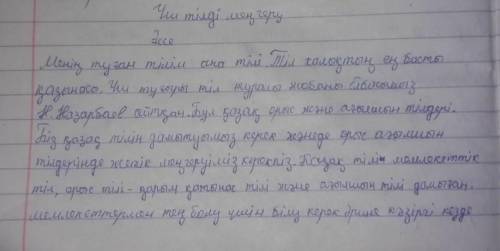 Үш тілді меңгеру
Эссе
Менің туған тілім ана тілі. Тіл халықтың ең басты
қазынасы. Үш тұғырлы тіл туралы жобаны Елбасымыз
Н. Назарбаев айтқан. Бұл қазақ орыс және ағылшын тілдері.
Біз қазақ тілін дамытуымыз керек және де орыс ағылшын
тілдерінде жетік меңгеруіміз керекпіз. Қазақ тілі мемлекеттік
тіл, орыс тілі - қарым қатынас тілі және ағылшын тілі дамыған
мемлекеттермен тең болу үшін білу керек қазіргі кезде